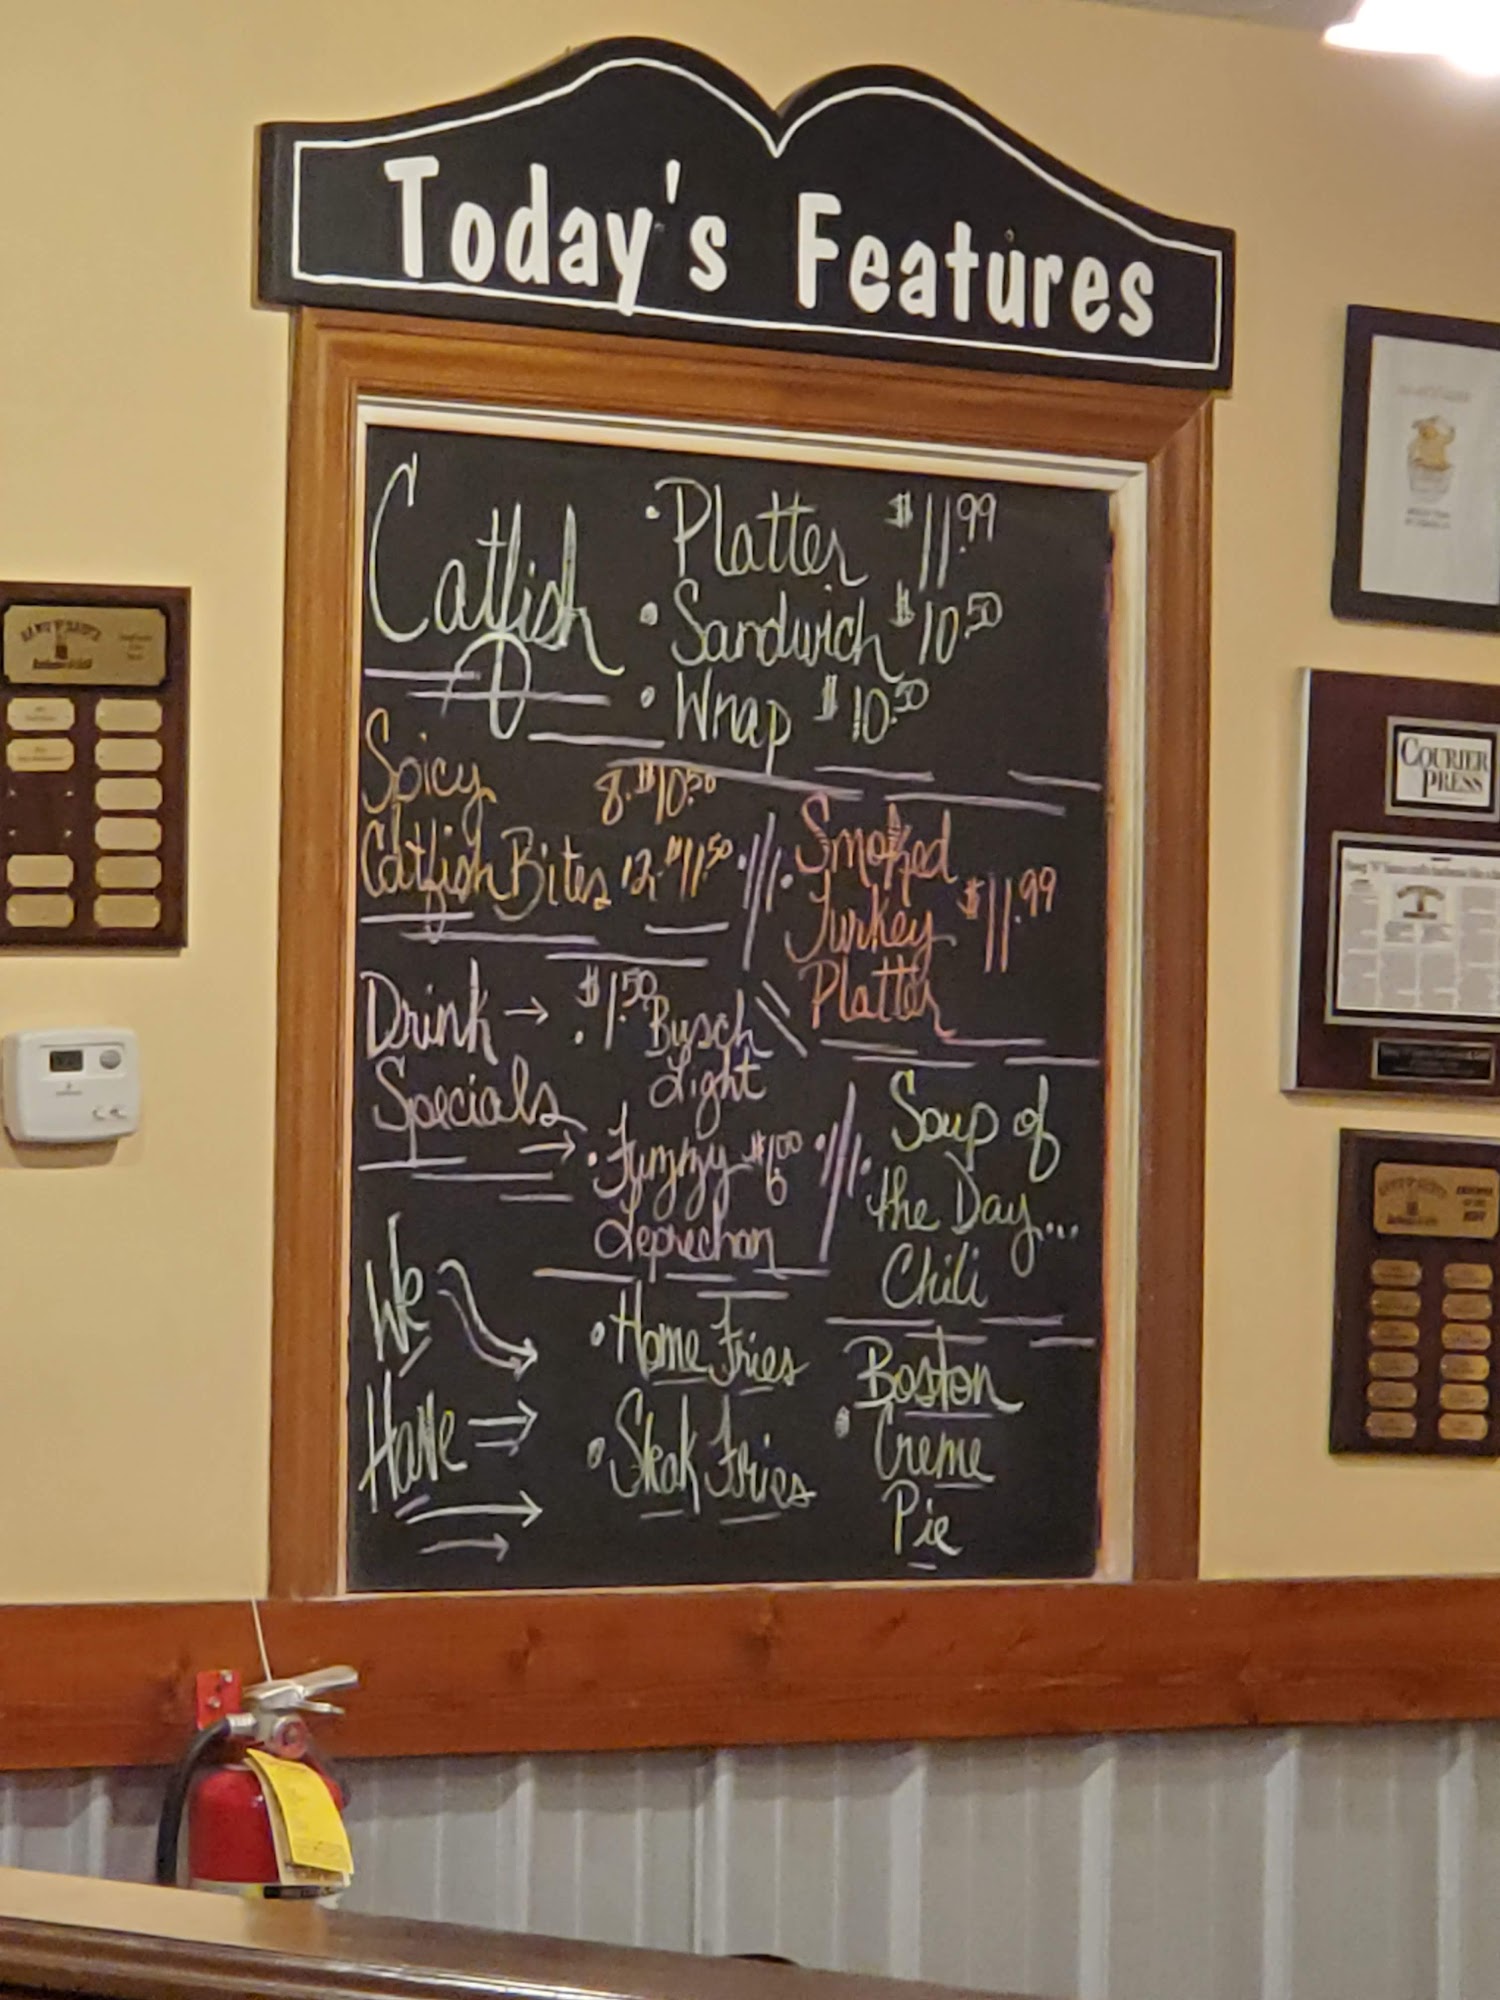 Today's Features
Catfish
• Platter $11.99
• Sandwich $10.50
• Wrap $10.50
Spicy
Catfish Bites
8. $10.50
12. $11.50
• Smoked
Turkey
Platter
$11.99
Drink →
Specials
→
• $1.50 Busch
Light
• Fuzzy $6.00
Leprechan
Soup of
the Day...
Chili
We
Have
• Home Fries
• Steak Fries
• Boston
Creme
Pie
COURIER
PRESS